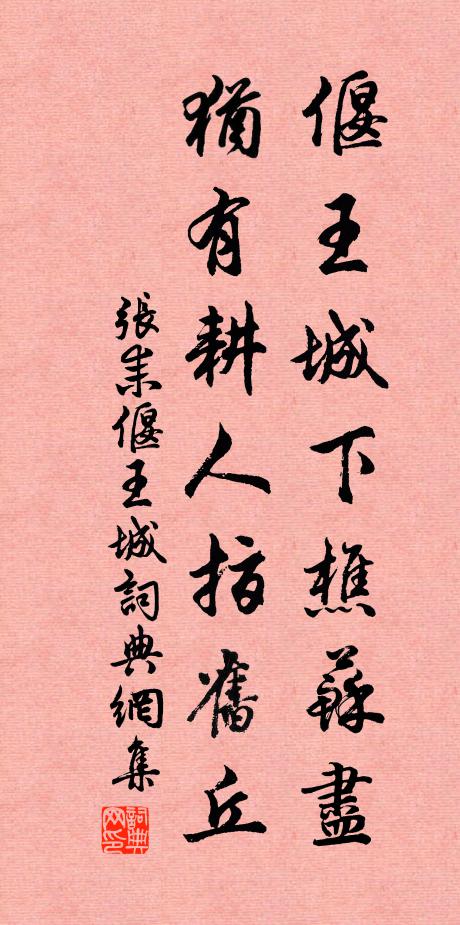 偃王城下樵蘇盡
猶有耕人指舊丘
張耒偃王城詞典網集
詞典网印